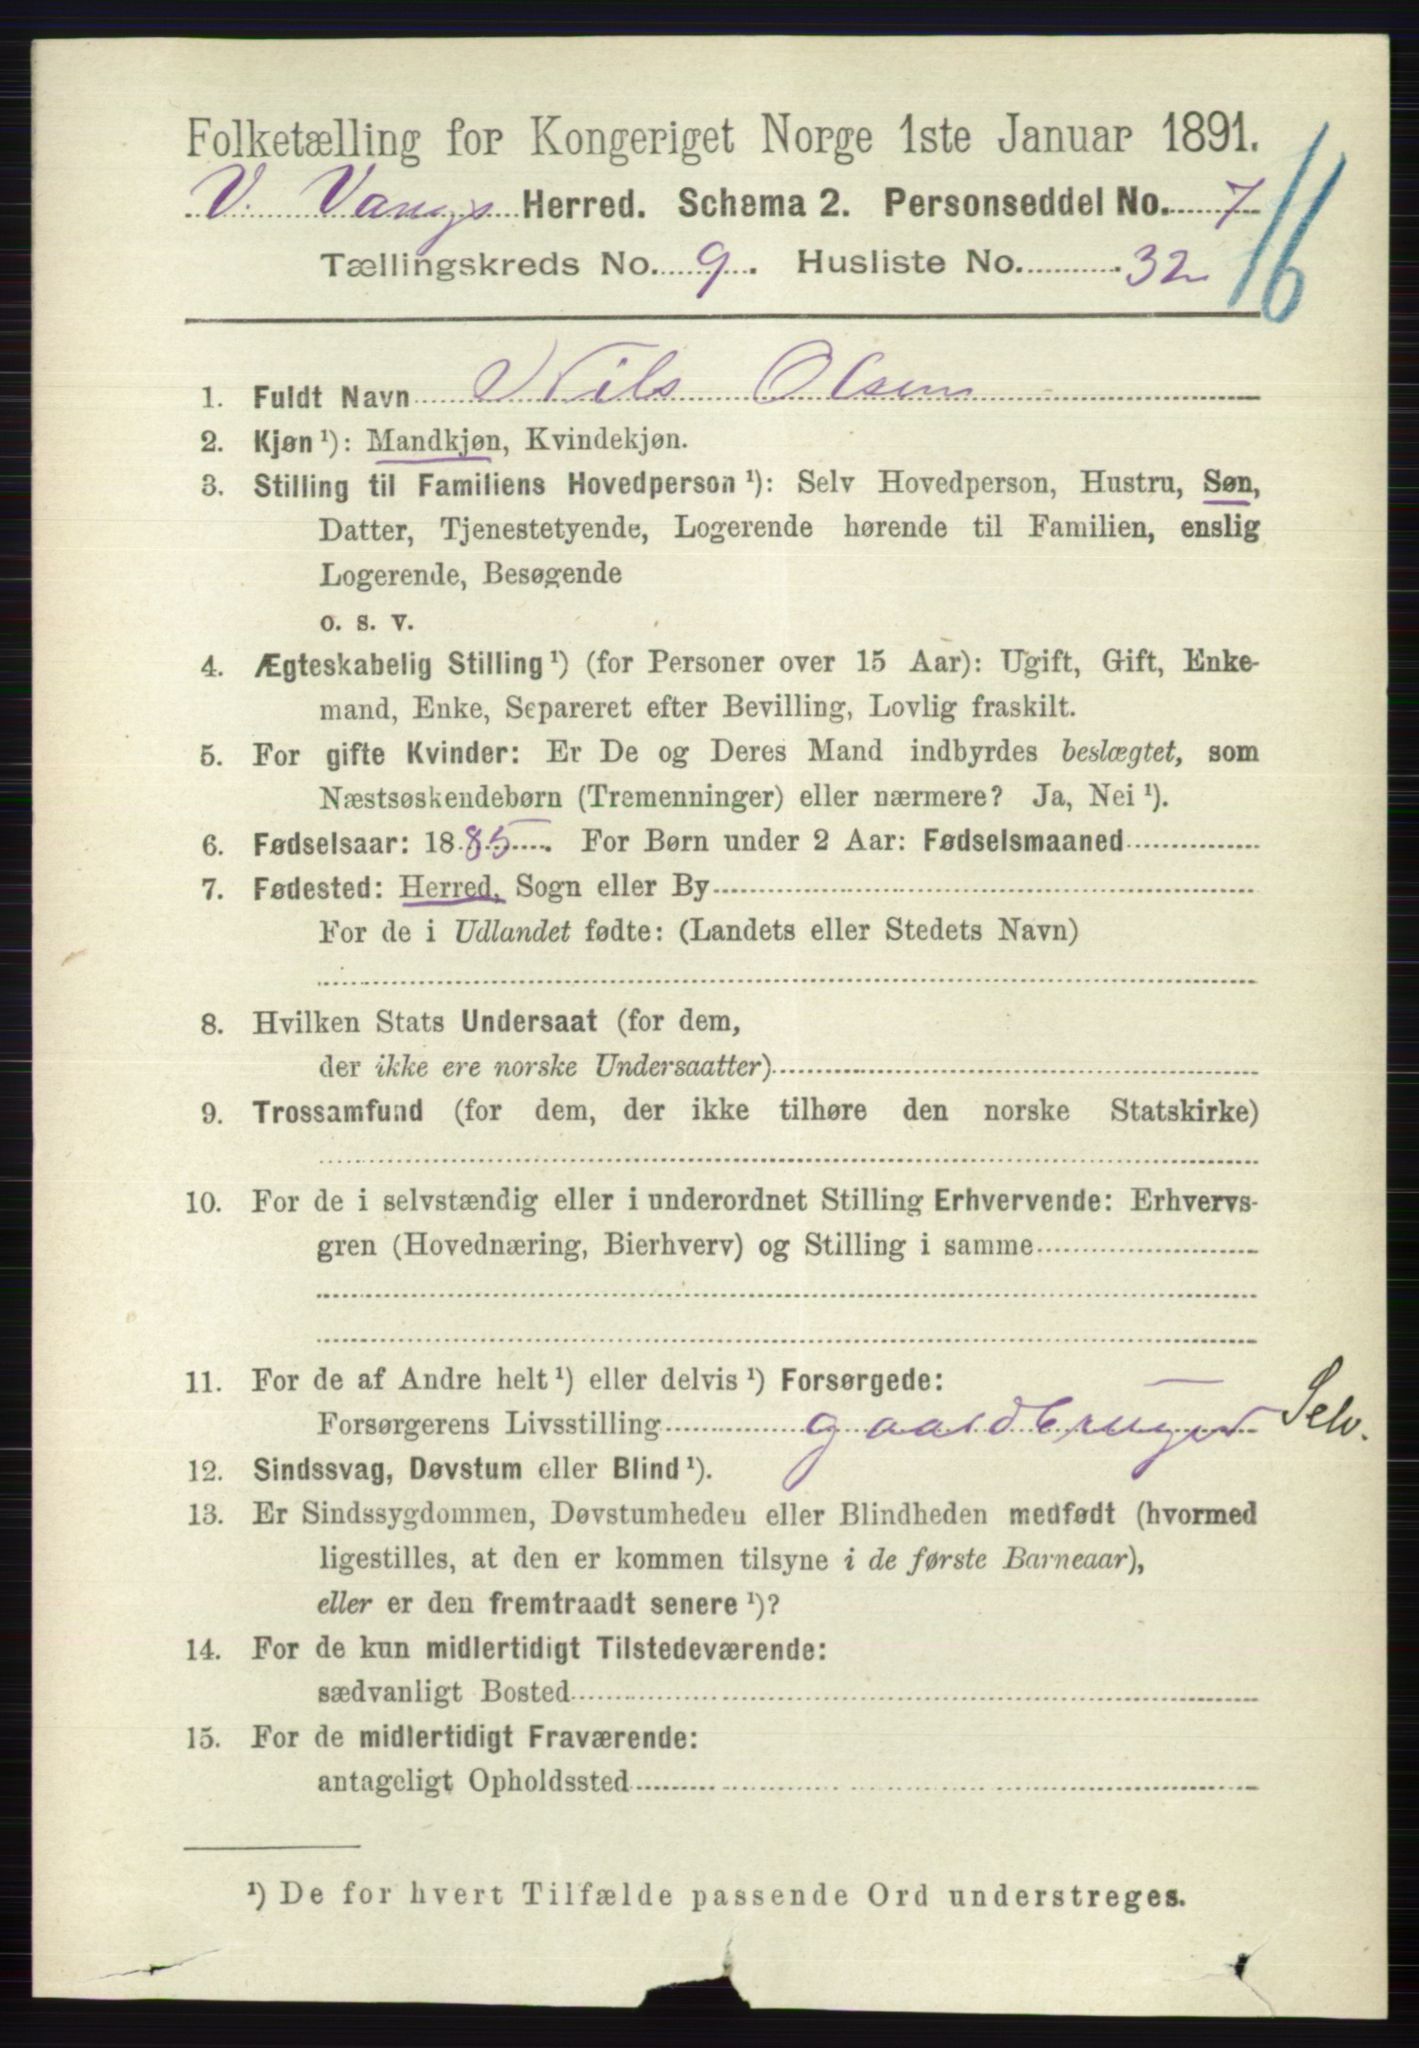 Folketælling for Kongeriget Norge 1ste Januar 1891.
V. Vangs Herred. Schema 2. Personseddel No. 7
Tællingskreds No. 9. Husliste No. 32
16
1. Fuldt Navn Nils Olsen
2. Kjøn ¹): Mandkjøn, Kvindekjøn.
3. Stilling til Familiens Hovedperson ¹): Selv Hovedperson, Hustru, Søn,
Datter, Tjenestetyende, Logerende hørende til Familien, enslig
Logerende, Besøgende
o. s. v.
4. Ægteskabelig Stilling ¹) (for Personer over 15 Aar): Ugift, Gift, Enke-
mand, Enke, Separeret efter Bevilling, Lovlig fraskilt.
5. For gifte Kvinder: Er De og Deres Mand indbyrdes beslægtet, som
Næstsøskendebørn (Tremenninger) eller nærmere? Ja, Nei ¹).
6. Fødselsaar: 1885. For Børn under 2 Aar: Fødselsmaaned
7. Fødested: Herred, Sogn eller By
For de i Udlandet fødte: (Landets eller Stedets Navn)
8. Hvilken Stats Undersaat (for dem,
der ikke ere norske Undersaatter)
9. Trossamfund (for dem, der ikke tilhøre den norske Statskirke)
10. For de i selvstændig eller i underordnet Stilling Erhvervende: Erhvervs-
gren (Hovednæring, Bierhverv) og Stilling i samme
11. For de af Andre helt ¹) eller delvis ¹) Forsørgede:
Forsørgerens Livsstilling gaardbruger Selv.
12. Sindssvag, Døvstum eller Blind ¹).
13. Er Sindssygdommen, Døvstumheden eller Blindheden medfødt (hvormed
ligestilles, at den er kommen tilsyne i de første Barneaar),
eller er den fremtraadt senere ¹)?
14. For de kun midlertidigt Tilstedeværende:
sædvanligt Bosted
15. For de midlertidigt Fraværende:
antageligt Opholdssted
¹) De for hvert Tilfælde passende Ord understreges.